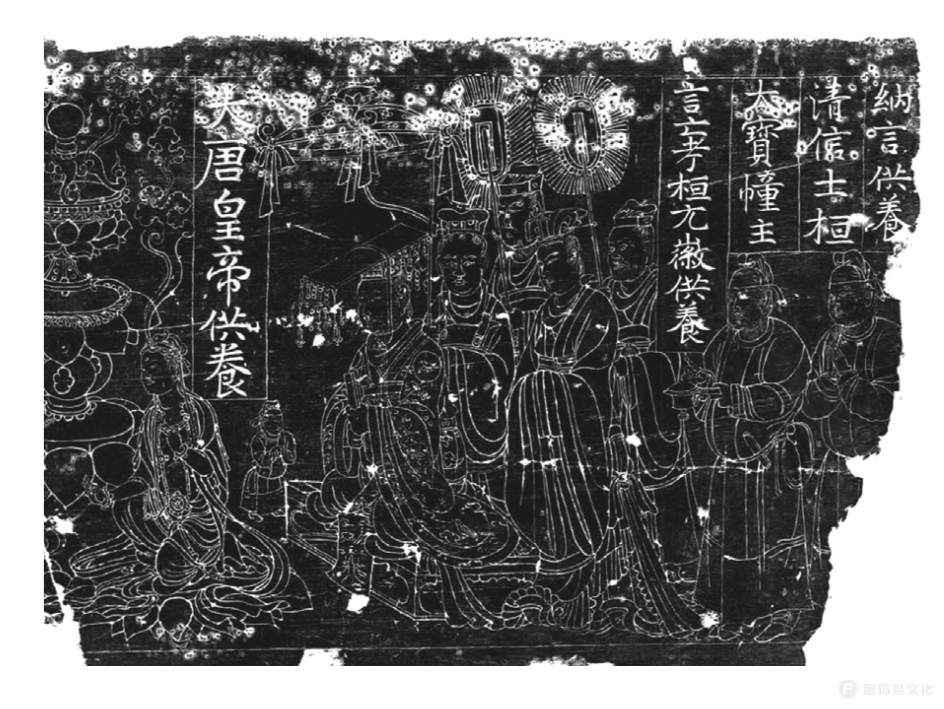 大唐皇帝供養
言亡考桓元徽供養
大寶幢主
清信士桓
納言供養
服饰易文化